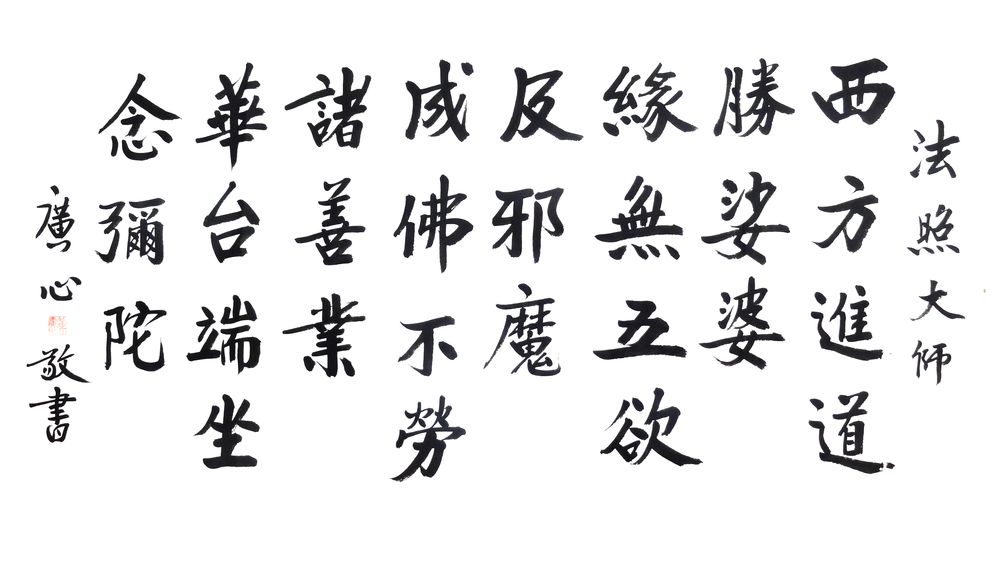 法照大師
西方進道
勝娑婆
緣無五欲
及邪魔
成佛不勞
諸善業
華台端坐
念彌陀
廣心敬書